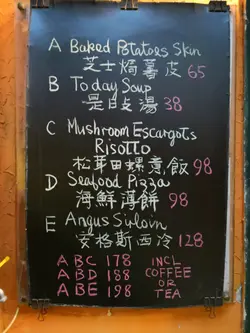 A Baked Potatoes Skin
芝士焗薯皮 65
B Today Soup
是日是湯 38
C Mushroom Escargots
Risotto
松茸田螺煮飯 98
D Seafood Pizza
海鮮薄餅 98
E Angus Sirloin
安格斯西冷 128
ABC 178 INCL
ABD 188 COFFEE
OR
ABE 198 TEA